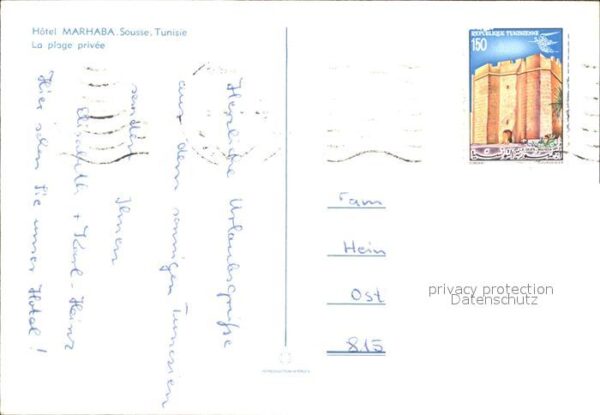 Hôtel MARHABA. Sousse, Tunisie
La plage privée
REPUBLIQUE TUNISIENNE
150
Herzliche Urlaubsgrüße
aus dem sonnigen Tunesien
senden Ihnen
Elisabeth + Karl-Heinz
Hier sehen Sie unser Hotel!
Fam
Hein
Ost
815
privacy protection
Datenschutz